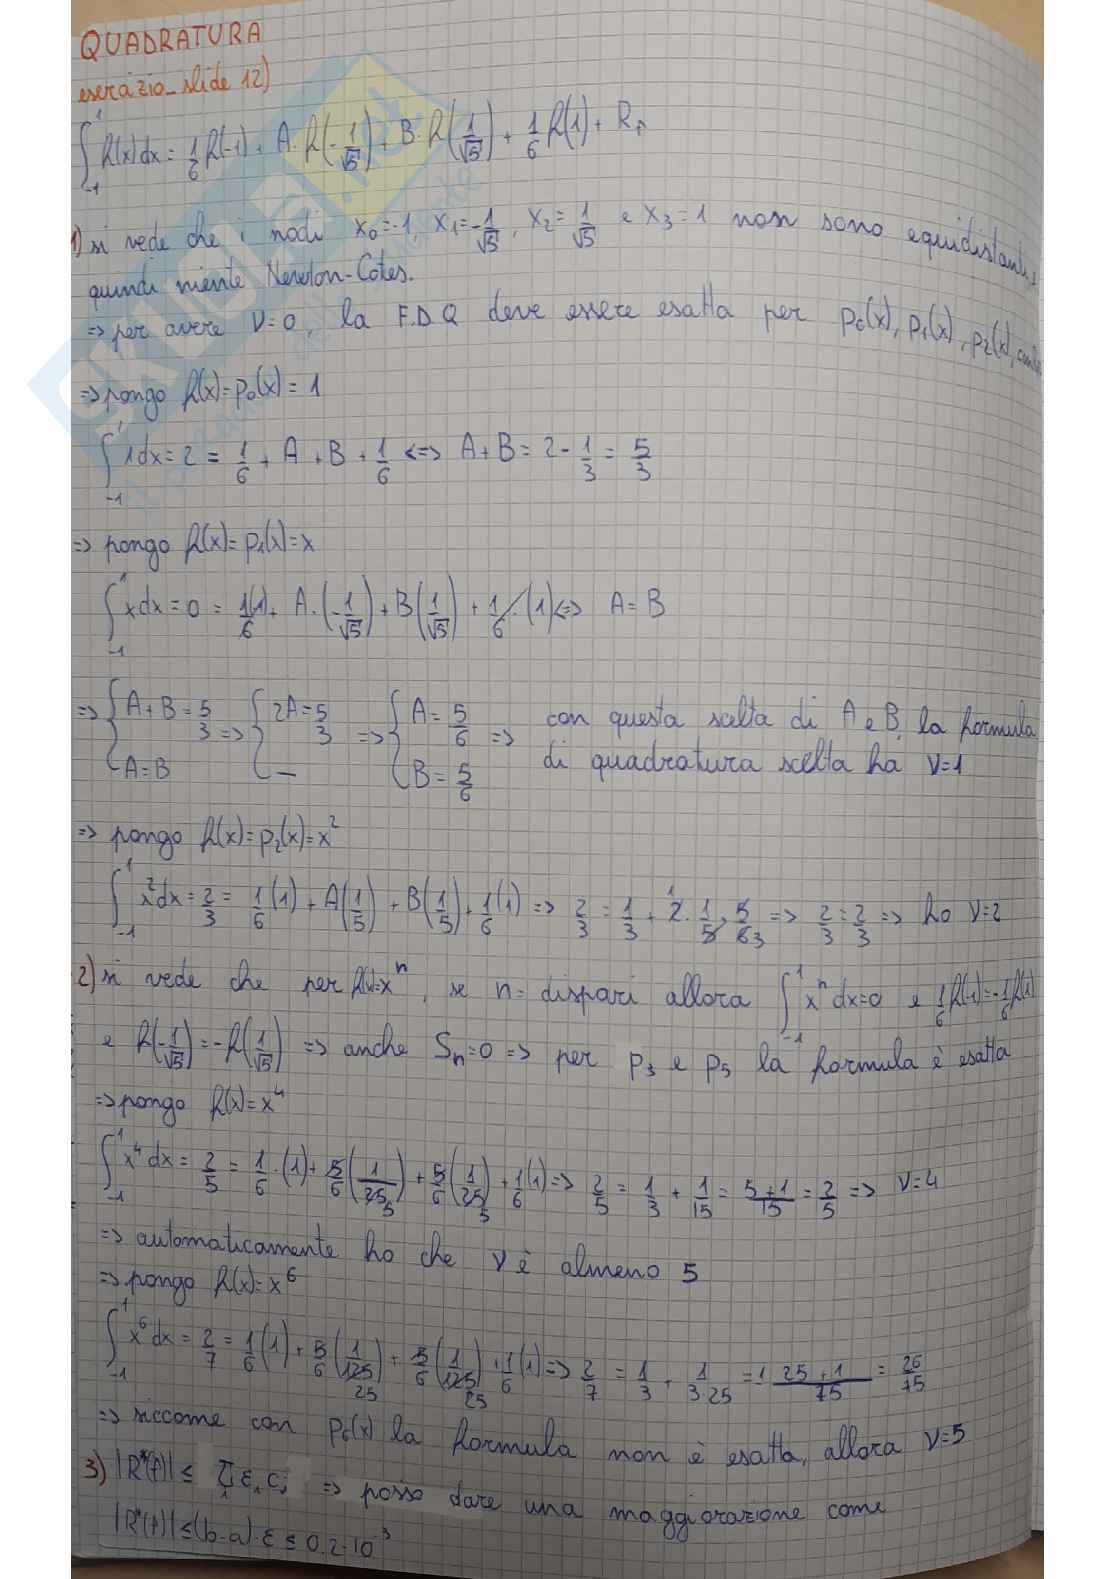 QUADRATURA
esercizio_slide 12)
∫_{-1}^{1} f(x)dx = 1/6 f(-1) + A·f(-1/√5) + B·f(1/√5) + 1/6 f(1) + R_n
1) si vede che i nodi x_0=-1, x_1=-1/√5, x_2=1/√5 e x_3=1 non sono equidistanti,
quindi niente Newton-Cotes.
=> per avere ν=0, la F.D.Q deve essere esatta per p_0(x), p_1(x), p_2(x),
=> pongo f(x)=p_0(x)=1
∫_{-1}^{1} 1dx = 2 = 1/6 + A + B + 1/6 <=> A+B = 2 - 1/3 = 5/3
=> pongo f(x)=p_1(x)=x
∫_{-1}^{1} xdx = 0 = 1/6(-1) + A·(-1/√5) + B(1/√5) + 1/6·(1) <=> A=B
=> { A+B=5/3 ; A=B => { 2A=5/3 ; — => { A=5/6 ; B=5/6 => con questa scelta di A e B, la formula
di quadratura scelta ha ν=1
=> pongo f(x)=p_2(x)=x²
∫_{-1}^{1} x²dx = 2/3 = 1/6(1) + A(1/5) + B(1/5) + 1/6(1) => 2/3 = 1/3 + 2·1/5·5/6 => 2/3=2/3 => ho ν=2
2) si vede che per f(x)=x^n, se n=dispari allora ∫_{-1}^{1} x^n dx=0 e 1/6 f(-1)=-1/6 f(1)
e f(-1/√5)=-f(1/√5) => anche S_n=0 => per p_3 e p_5 la formula è esatta
=> pongo f(x)=x⁴
∫_{-1}^{1} x⁴dx = 2/5 = 1/6·(1) + 5/6(1/25) + 5/6(1/25) + 1/6(1) => 2/5 = 1/3 + 1/15 = 5+1/15 = 2/5 => ν=4
=> automaticamente ho che ν è almeno 5
=> pongo f(x)=x⁶
∫_{-1}^{1} x⁶dx = 2/7 = 1/6(1) + 5/6(1/125) + 5/6(1/125) + 1/6(1) => 2/7 = 1/3 + 1/3·25 = 25+1/75 = 26/75
=> siccome con p_6(x) la formula non è esatta, allora ν=5
3) |R*(f)| ≤ ε_i c_i => posso dare una maggiorazione come
|R*(f)| ≤ (b-a)·ε ≤ 0.2·10^{-3}